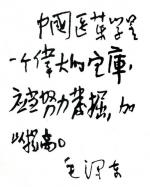 中國医葯学是
一个偉大的宝庫，
应当努力發掘，加
以提高。
毛澤东